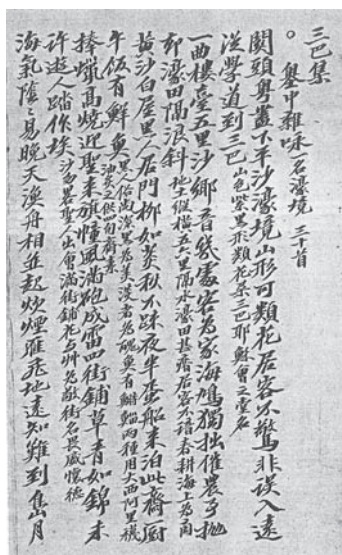 三巴集
。墺中雜咏 一名濠境 三十首
關頭粵盡下平沙濠境山形可類花居客不驚非誤入遠
從學道到三巴 山色紫黑形類花朵三巴耶穌會之堂名
一曲樓臺五里沙鄉音幾處客為家海鳩獨拙催農事拋
却濠田隔浪斜 地土縱橫五六里隔水濠田甚瘠居客不諳春耕海上為商
黃沙白屋黑人居門柳如菼秋不疎夜半蜑船來泊此齋厨
午飯有鮮魚 黑人俗尚深黑為美淡者為醜魚有鰣鰡兩種用大西阿里襪油炙之供四旬齋素
捧蠟高燒迎聖來旗幢風滿砲成雷四街鋪草青如錦未
許遊人踏作埃 沙勿畧聖人出會滿街鋪花與艸為敬街名畏威懷德
海氣陰陰易晚天漁舟相並起炊煙雁飛地遠知難到島月